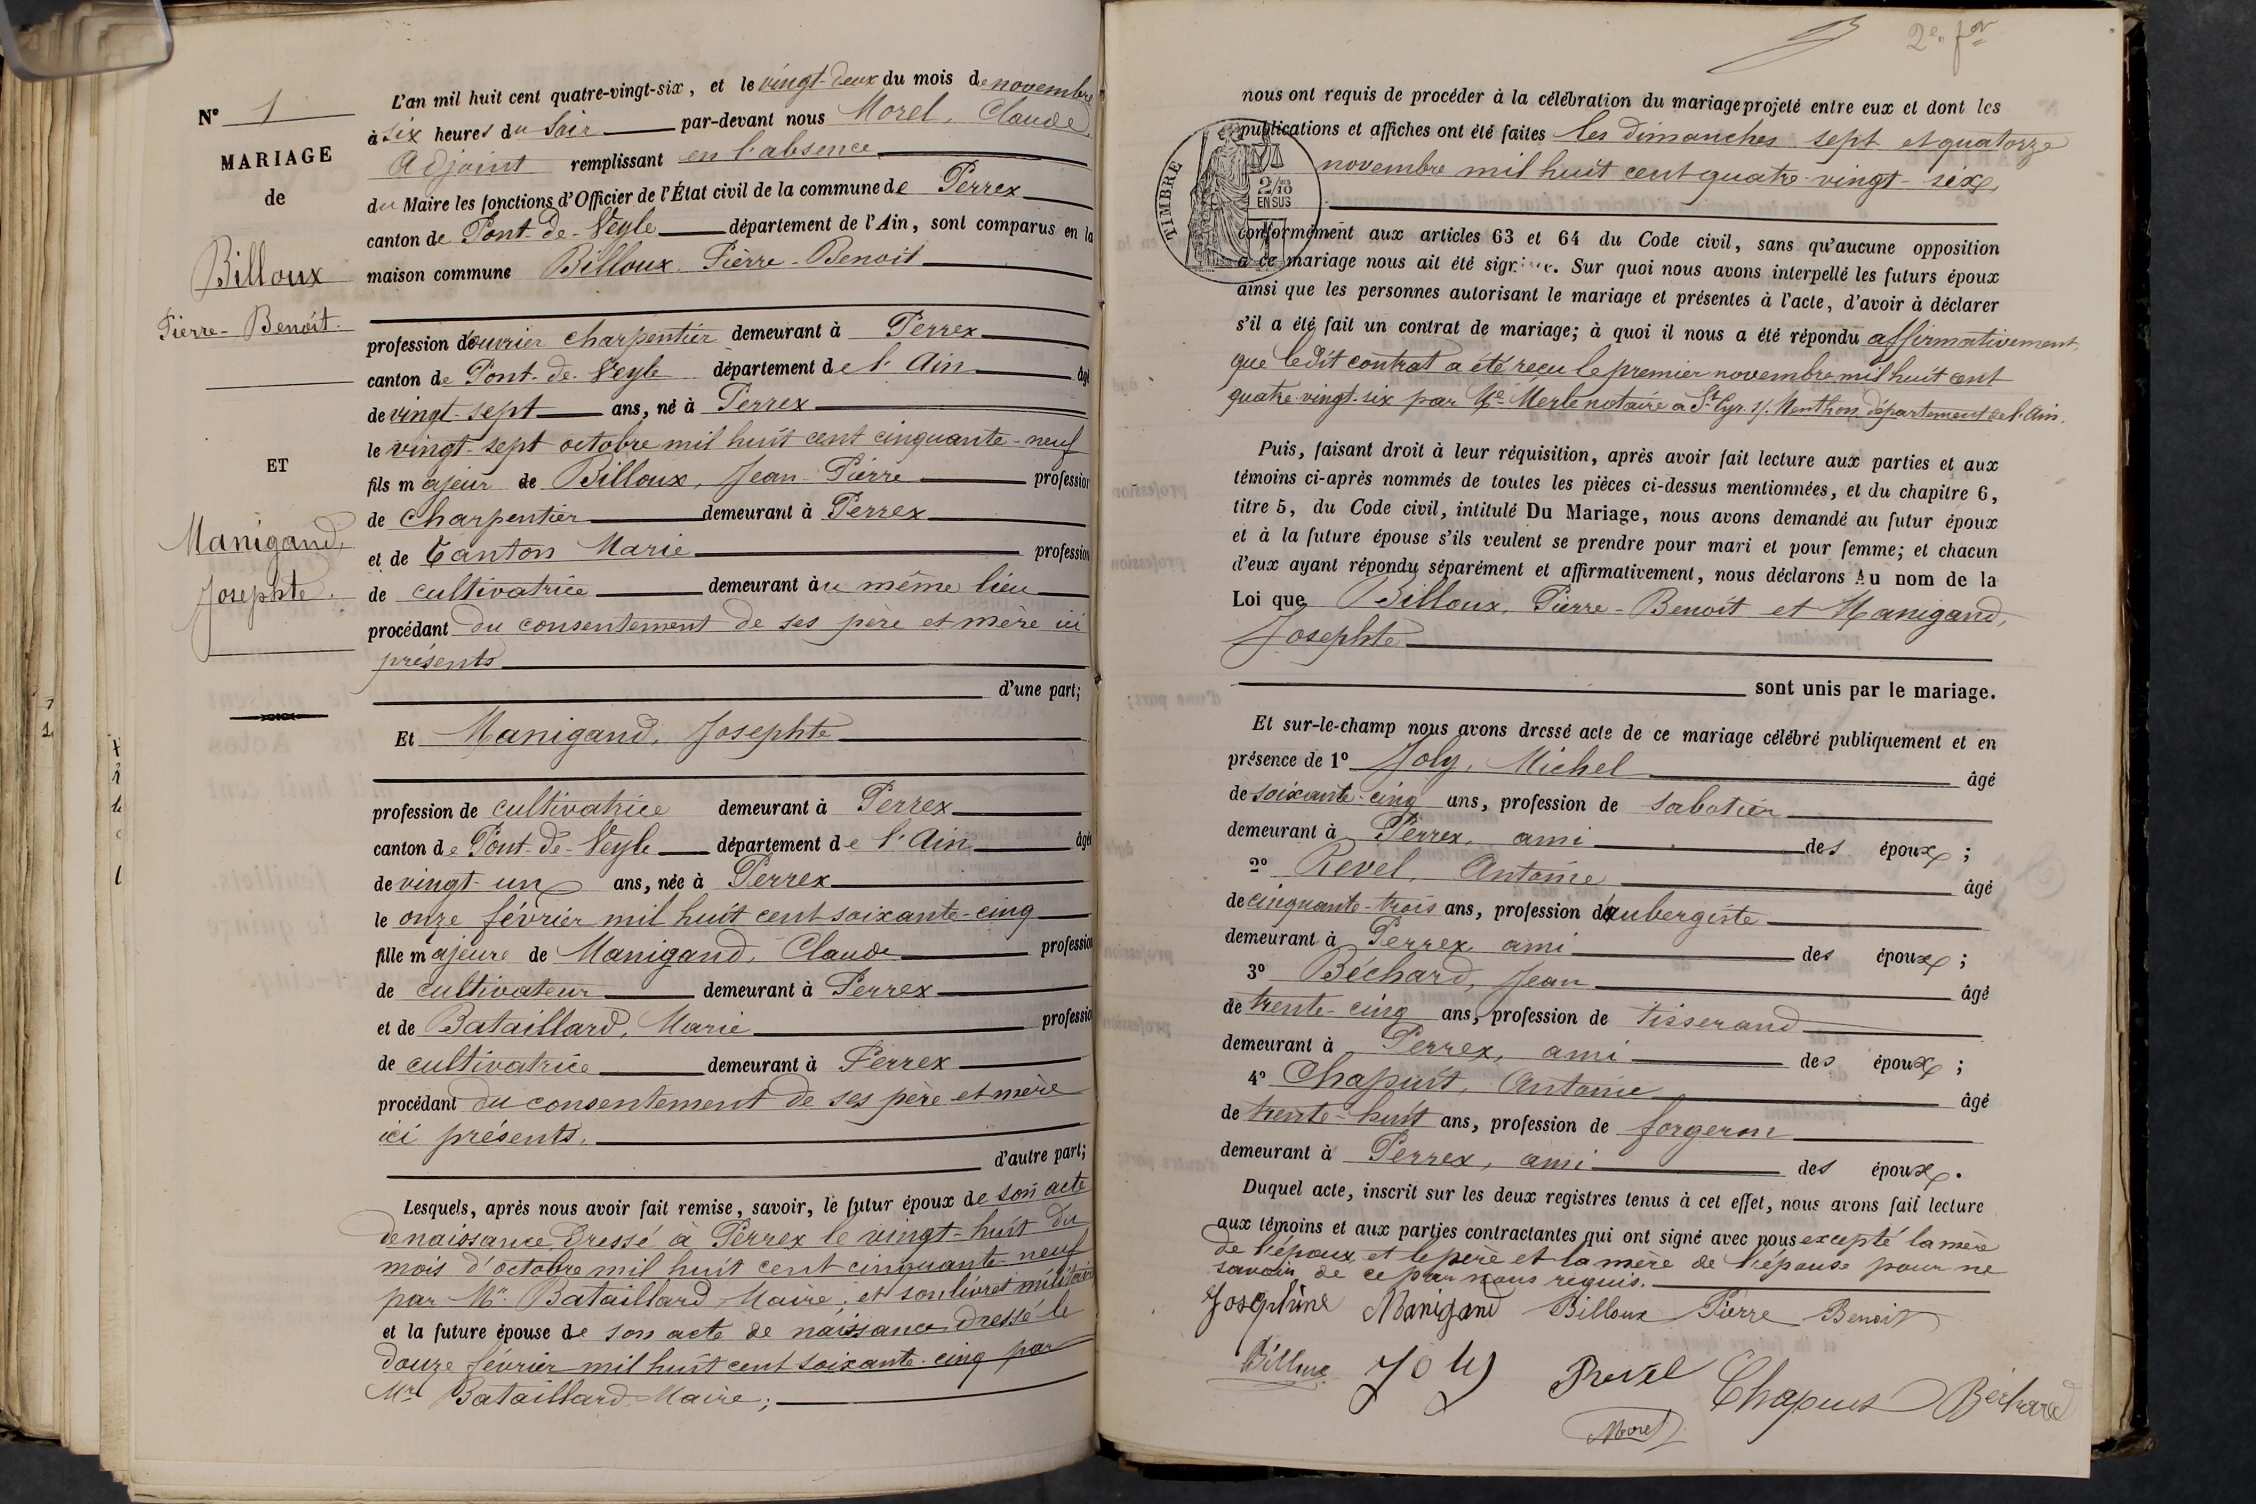 N° 1
MARIAGE
de
Billoux
Pierre-Benoît.
ET
Manigand,
Josephte.
L'an mil huit cent quatre-vingt-six, et le vingt-deux du mois de novembre
à six heures du soir par-devant nous Morel, Claude,
Adjoint remplissant en l'absence
du Maire les fonctions d'Officier de l'État civil de la commune de Perrex
canton de Pont-de-Veyle département de l'Ain, sont comparus en la
maison commune Billoux Pierre-Benoit
profession d'ouvrier charpentier demeurant à Perrex
canton de Pont-de-Veyle département de l'Ain âgé
de vingt-sept ans, né à Perrex
le vingt-sept octobre mil huit cent cinquante-neuf
fils majeur de Billoux, Jean-Pierre profession
de charpentier demeurant à Perrex
et de Tanton Marie profession
de cultivatrice demeurant au même lieu
procédant du consentement de ses père et mère ici
présents
d'une part;
Et Manigand, Josephte
profession de cultivatrice demeurant à Perrex
canton de Pont-de-Veyle département de l'Ain âgée
de vingt-un ans, née à Perrex
le onze février mil huit cent soixante-cinq
fille majeure de Manigand, Claude profession
de cultivateur demeurant à Perrex
et de Bataillard, Marie profession
de cultivatrice demeurant à Perrex
procédant du consentement de ses père et mère
ici présents.
d'autre part;
Lesquels, après nous avoir fait remise, savoir, le futur époux de son acte
de naissance dressé à Perrex le vingt-huit du
mois d'octobre mil huit cent cinquante-neuf
par Mr Bataillard, Maire, et son livret militaire
et la future épouse de son acte de naissance dressé le
douze février mil huit cent soixante-cinq par
Mr Bataillard Maire;
2e
TIMBRE
2/10
EN SUS
nous ont requis de procéder à la célébration du mariage projeté entre eux et dont les
publications et affiches ont été faites les dimanches sept et quatorze
novembre mil huit cent quatre-vingt-six,
conformément aux articles 63 et 64 du Code civil, sans qu'aucune opposition
à ce mariage nous ait été signifiée. Sur quoi nous avons interpellé les futurs époux
ainsi que les personnes autorisant le mariage et présentes à l'acte, d'avoir à déclarer
s'il a été fait un contrat de mariage; à quoi il nous a été répondu affirmativement,
que ledit contrat a été reçu le premier novembre mil huit cent
quatre-vingt-six par Me Merle notaire à St Cyr-s/-Menthon, département de l'Ain.
Puis, faisant droit à leur réquisition, après avoir fait lecture aux parties et aux
témoins ci-après nommés de toutes les pièces ci-dessus mentionnées, et du chapitre 6,
titre 5, du Code civil, intitulé Du Mariage, nous avons demandé au futur époux
et à la future épouse s'ils veulent se prendre pour mari et pour femme; et chacun
d'eux ayant répondu séparément et affirmativement, nous déclarons Au nom de la
Loi que Billoux, Pierre-Benoît et Manigand,
Josephte
sont unis par le mariage.
Et sur-le-champ nous avons dressé acte de ce mariage célébré publiquement et en
présence de 1° Joly, Michel âgé
de soixante-cinq ans, profession de sabotier
demeurant à Perrex, ami des époux;
2° Revel, Antoine âgé
de cinquante-trois ans, profession d'aubergiste
demeurant à Perrex ami des époux;
3° Béchard, Jean âgé
de trente-cinq ans, profession de tisserand
demeurant à Perrex, ami des époux;
4° Chapuit, Antoine âgé
de trente-huit ans, profession de forgeron
demeurant à Perrex, ami des époux.
Duquel acte, inscrit sur les deux registres tenus à cet effet, nous avons fait lecture
aux témoins et aux parties contractantes qui ont signé avec nous excepté la mère
de l'époux et le père et la mère de l'épouse pour ne
savoir de ce par nous requis.
Josephine Manigand Billoux Pierre Benoit
Billoux Joly Revel Chapuis Béchard
Morel